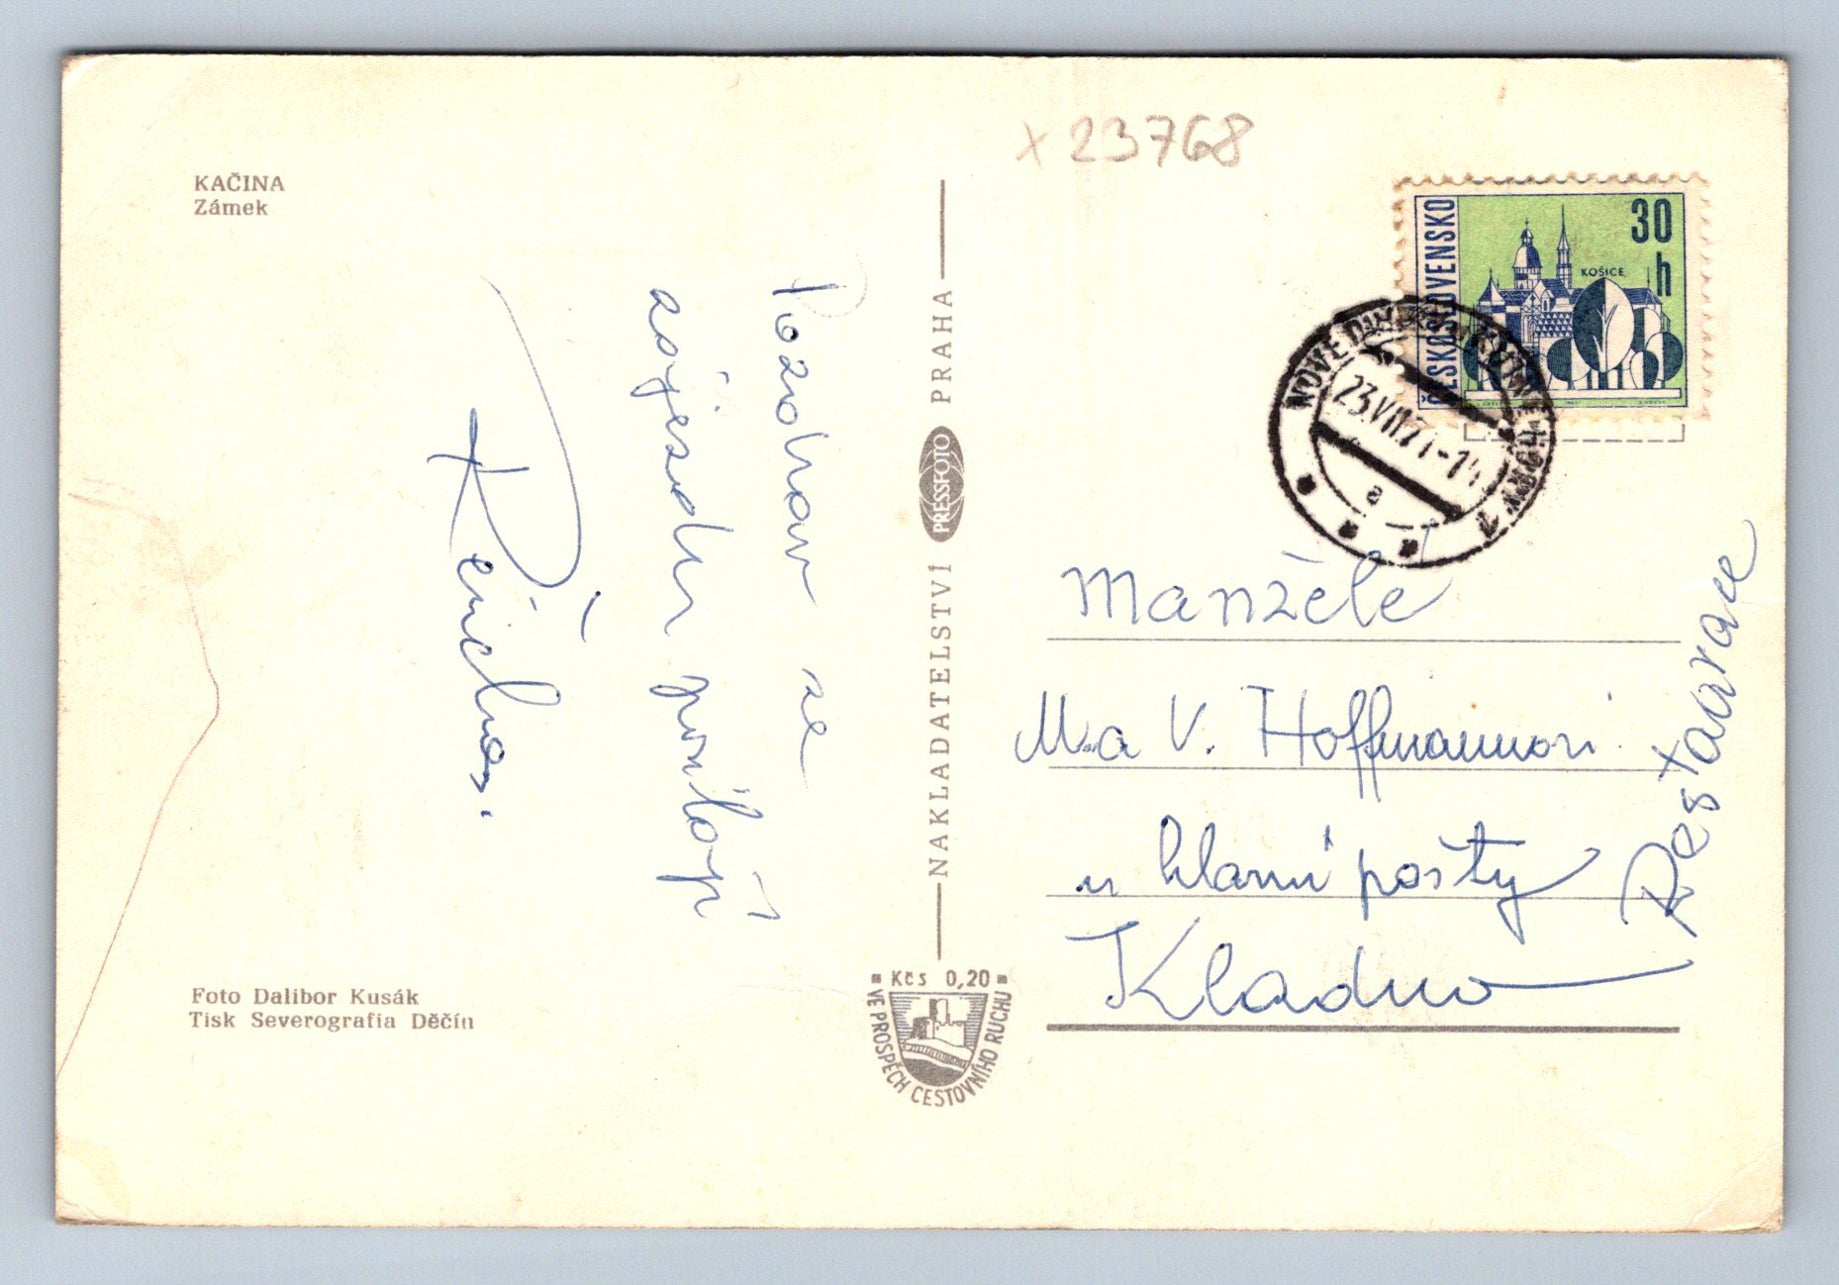 KAČINA
Zámek
Pozdrav ze
zájezdu posílají
Foto Dalibor Kusák
Tisk Severografia Děčín
NAKLADATELSTVÍ PRESSFOTO PRAHA
Kčs 0,20
VE PROSPĚCH CESTOVNÍHO RUCHU
x 23768
ČESKOSLOVENSKO
30 h
KOŠICE
NOVÉ DVORY
23.VII.71-14
a
Manželé
M. a V. Hoffmannovi
u hlavní pošty
Kladno
Restaurace